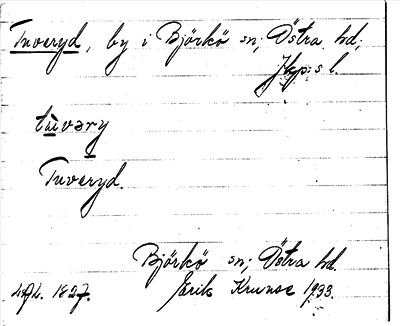 Tuveryd, by i Björkö sn; Östra hd;
Jkp:s l.
tùvəry
Tuveryd.
Björkö sn; Östra hd.
1827. Erik Kruuse 1933.